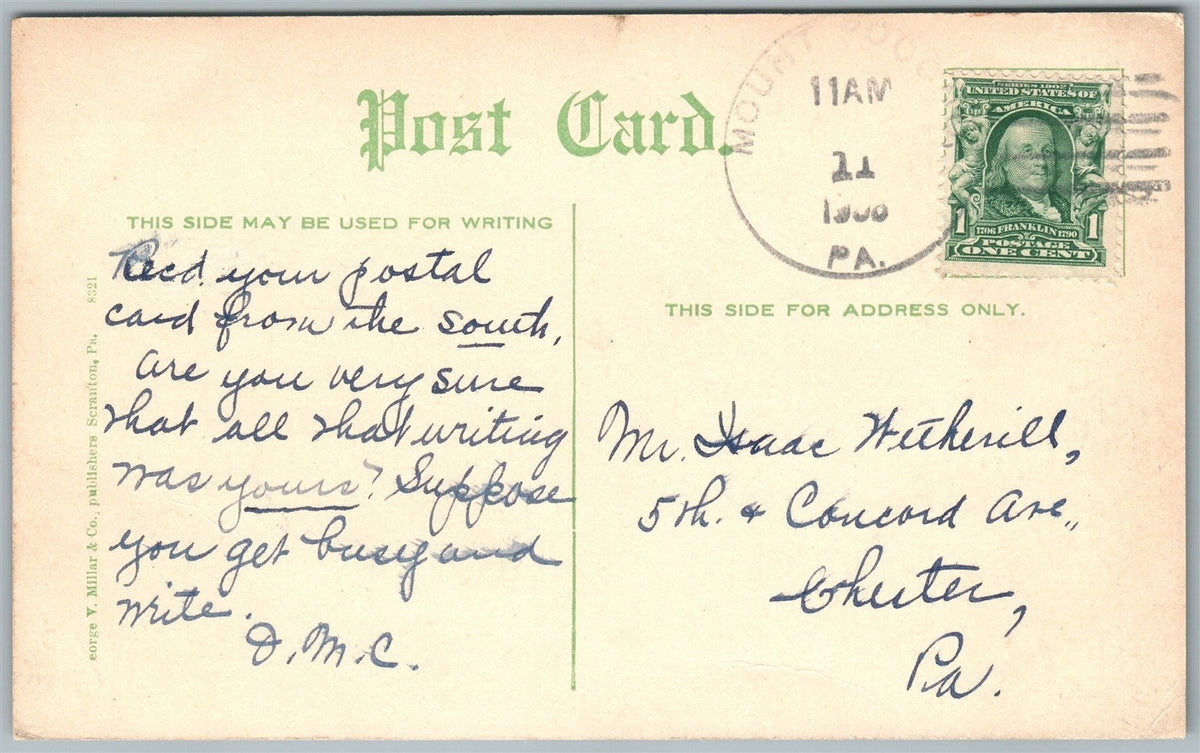 Post Card.
THIS SIDE MAY BE USED FOR WRITING
Recd. your postal
card from the south,
are you very sure
that all that writing
was yours? Suppose
you get busy and
write.
D.M.C.
eorge V. Millar & Co., publishers Scranton, Pa. 8321
MOUNT POCO
11AM
11
1908
PA.
SERIES 1902
UNITED STATES OF
AMERICA
1 1706 FRANKLIN 1790 1
POSTAGE
ONE CENT
THIS SIDE FOR ADDRESS ONLY.
Mr. Isaac Wetherill,
5th. & Concord Ave.,
Chester,
Pa.